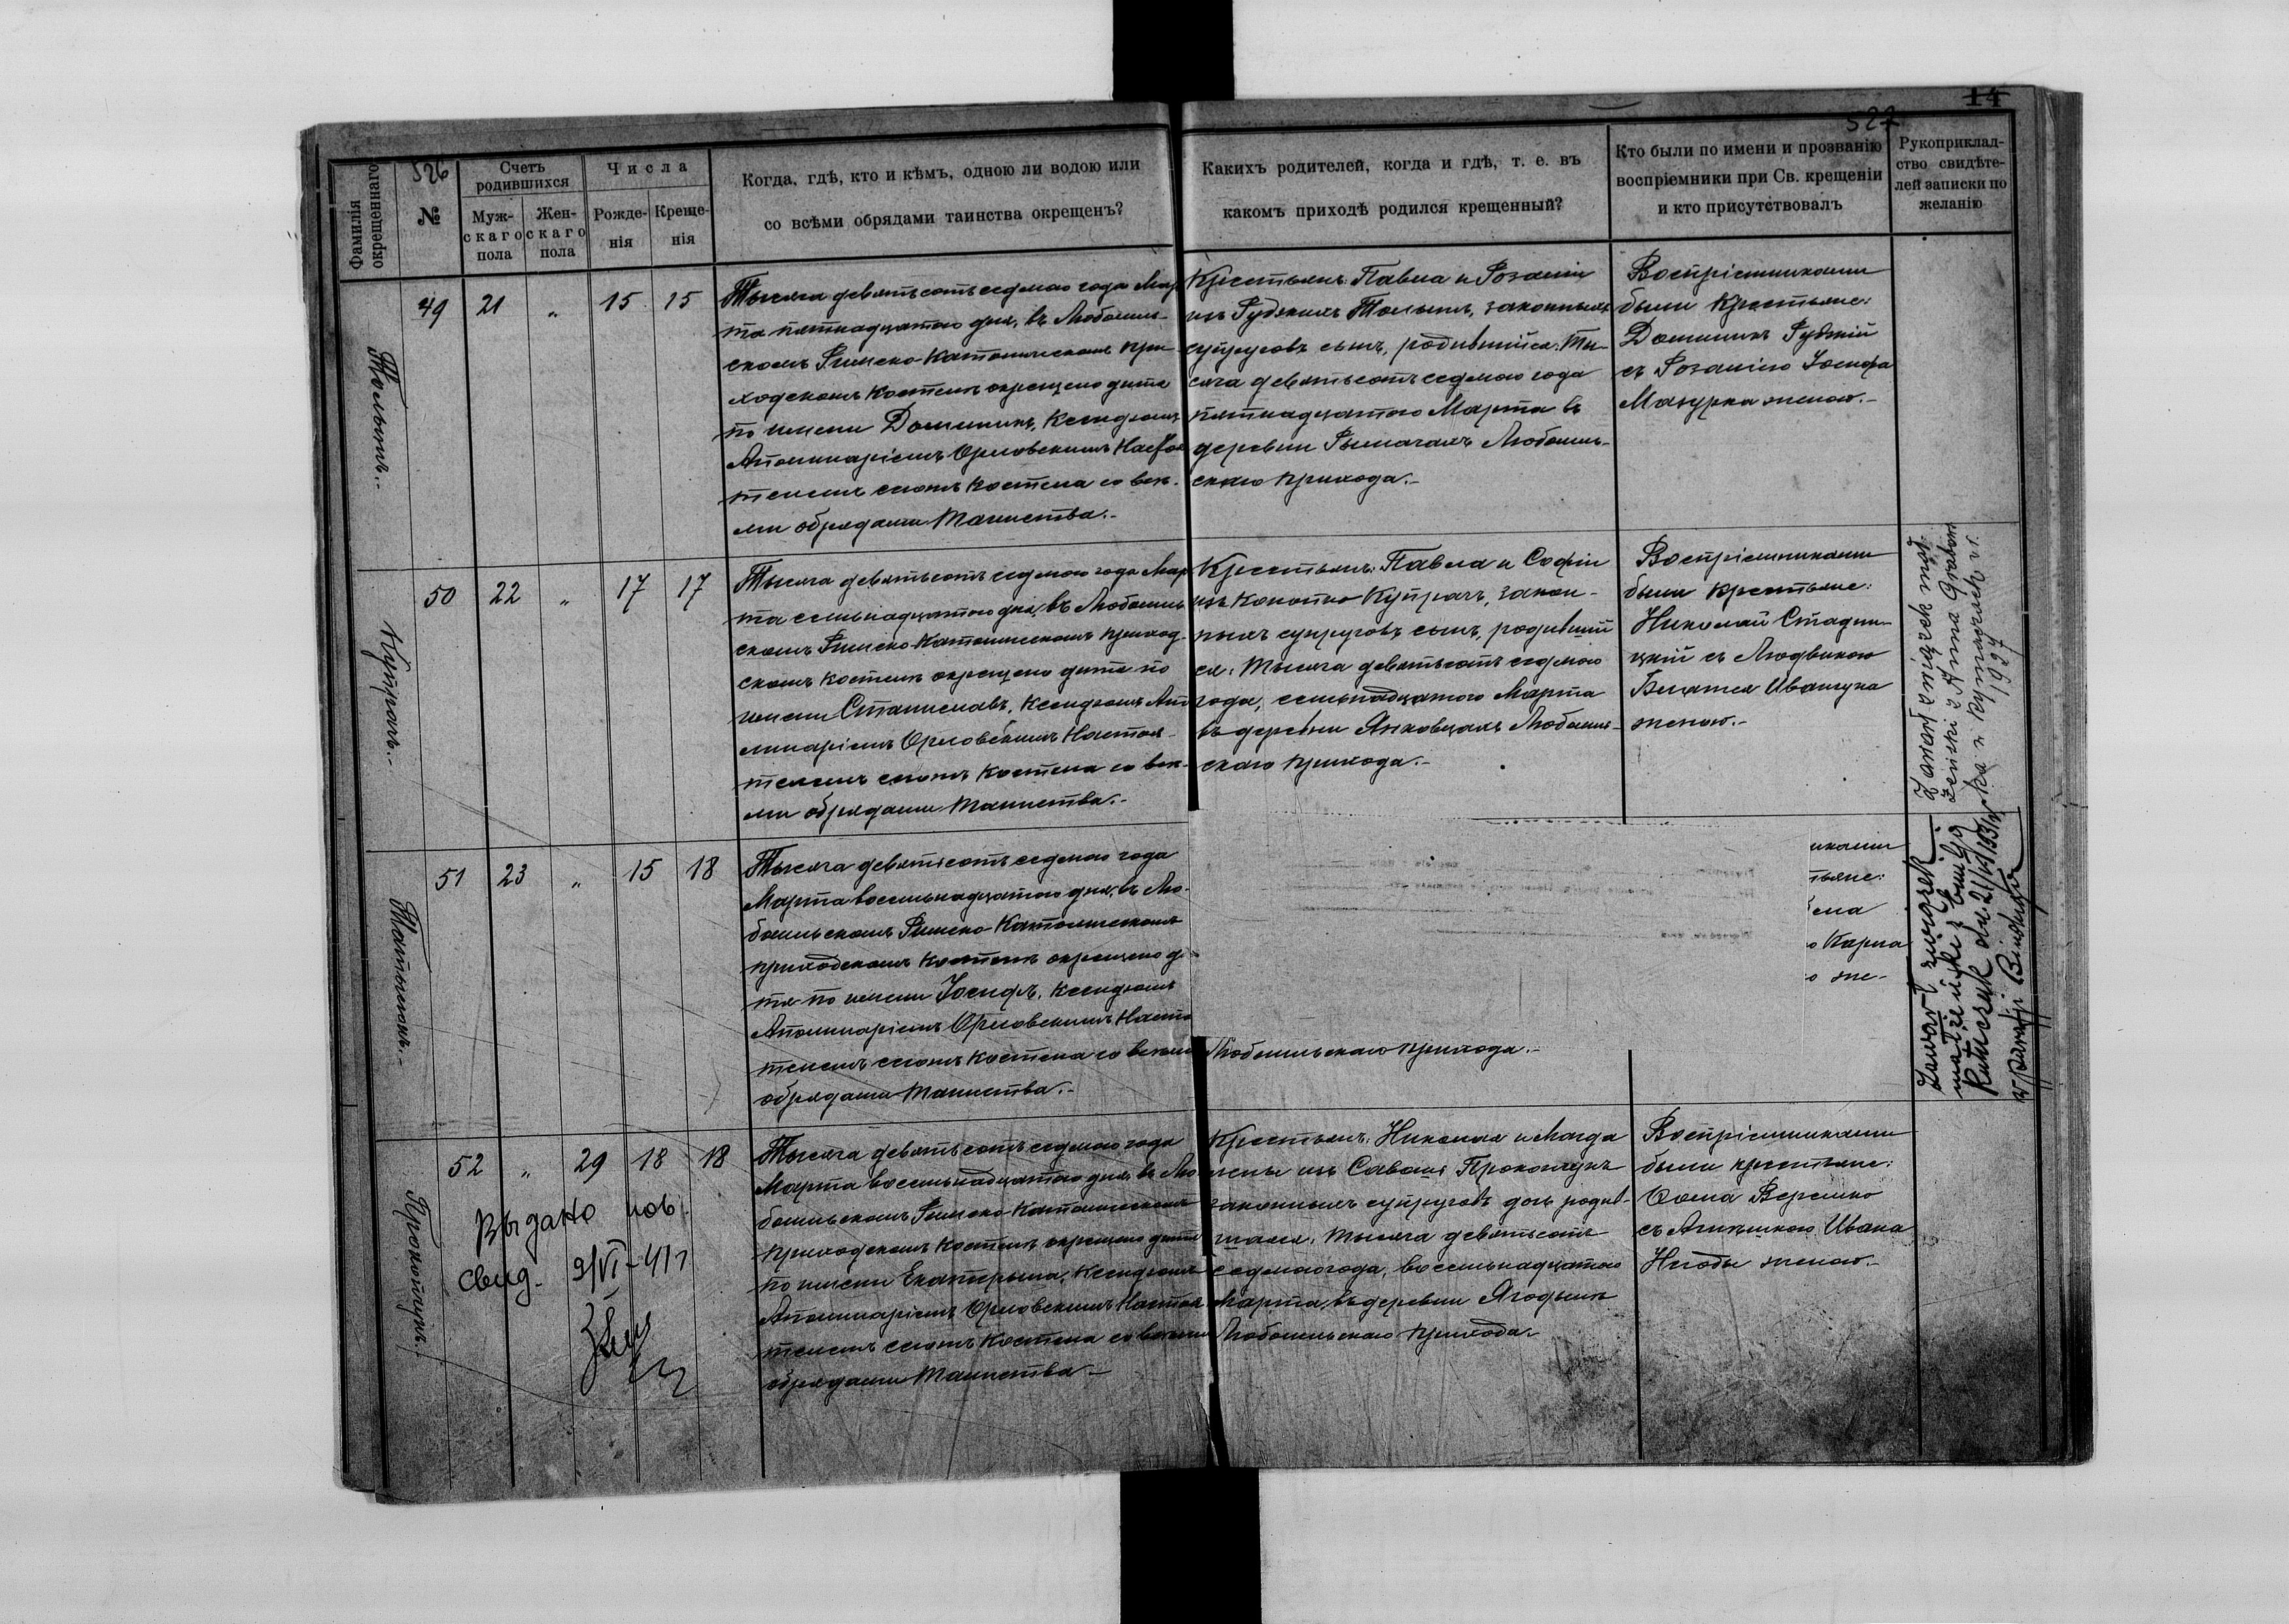 14
526
527
Фамилія окрещеннаго
№
Счетъ родившихся
Мужскаго пола
Женскаго пола
Числа
Рожденія
Крещенія
Когда, гдѣ, кто и кѣмъ, одною ли водою или
со всѣми обрядами таинства окрещенъ?
Какихъ родителей, когда и гдѣ, т. е. въ
какомъ приходѣ родился крещенный?
Кто были по имени и прозванію
воспріемники при Св. крещеніи
и кто присутствовалъ
Рукоприклад-
ство свидѣте-
лей записки по
желанію
49 21 „ 15 15
Тысяча девятьсотъ седьмого года Мар
та пятнадцатого дня, въ Любомль-
скомъ Римско-Католическомъ при-
ходскомъ Костелѣ окрещено дитя
по имени Доминикъ, Ксендзомъ
Аполинаріемъ Орловскимъ Настоя
телемъ сего Костела со всѣ-
ми обрядами Таинства.-
Крестьянъ: Павла и Розаліи
изъ Рудзкихъ законныхъ
супруговъ сынъ, родившійся: Ты-
сяча девятьсотъ седьмого года
пятнадцатого Марта въ
деревни Рымачахъ Любомль-
скаго прихода.-
Воспріемниками
были Крестьяне:
Доминикъ Рудзкій
съ Розаліею Іосифа
Мазурка женою.-
50 22 „ 17 17
Купрачъ.-
Тысяча девятьсотъ седьмого года Мар
та семьнадцатого дня, въ Любомль
скомъ Римско-Католическомъ приход-
скомъ Костелѣ окрещено дитя по
имени Станиславъ, Ксендзомъ Апо
линаріемъ Орловскимъ Настоя-
телемъ сего Костела со всѣ-
ми обрядами Таинства.-
Крестьянъ: Павла и Софіи
изъ Конопко Купрачъ, закон-
ныхъ супруговъ сынъ, родившій
ся: Тысяча девятьсотъ седьмого
года, семьнадцатого Марта
въ деревни Янковцахъ Любомль-
скаго прихода.-
Воспріемниками
были Крестьяне:
Николай Стадни-
цкій съ Людвикою
Иващука
женою.-
Zawarł związek mał.
żeński z Anną Grabow
ską w Rymaczach w r.
1927
51 23 „ 15 18
Тысяча девятьсотъ седьмого года
Марта восемьнадцатого дня, въ Лю-
бомльскомъ Римско-Католическомъ
приходскомъ Костелѣ окрещено ди-
тя по имени Іосифъ, Ксендзомъ
Аполинаріемъ Орловскимъ Насто
телемъ сего Костела со всѣми
обрядами Таинства.-
Любомльскаго прихода.-
никами
тьяне:
о Карла
о же-
Zawarł związek
małżeński z Emilją
52 „ 29 18 18
Прокопчукъ.
Выдано нов.
свид. 9/VI-41 г
Тысяча девятьсотъ седьмого года
Марта восемьнадцатого дня, въ Лю
бомльскомъ Римско-Католическомъ
приходскомъ Костелѣ окрещено дитя
по имени Екатерина, Ксендзомъ
Аполинаріемъ Орловскимъ Настоя
телемъ сего Костела со всѣми
обрядами Таинства.-
Крестьянъ: Николая и Магда
лены изъ Прокопчукъ
законныхъ супруговъ дочь родив-
шаяся: Тысяча девятьсотъ
седьмого года, восемьнадцатого
Марта, въ деревни Ягодынѣ
Любомльскаго прихода.
Воспріемниками
были крестьяне:
Ѳома Веремко
съ Ивана
женою.-